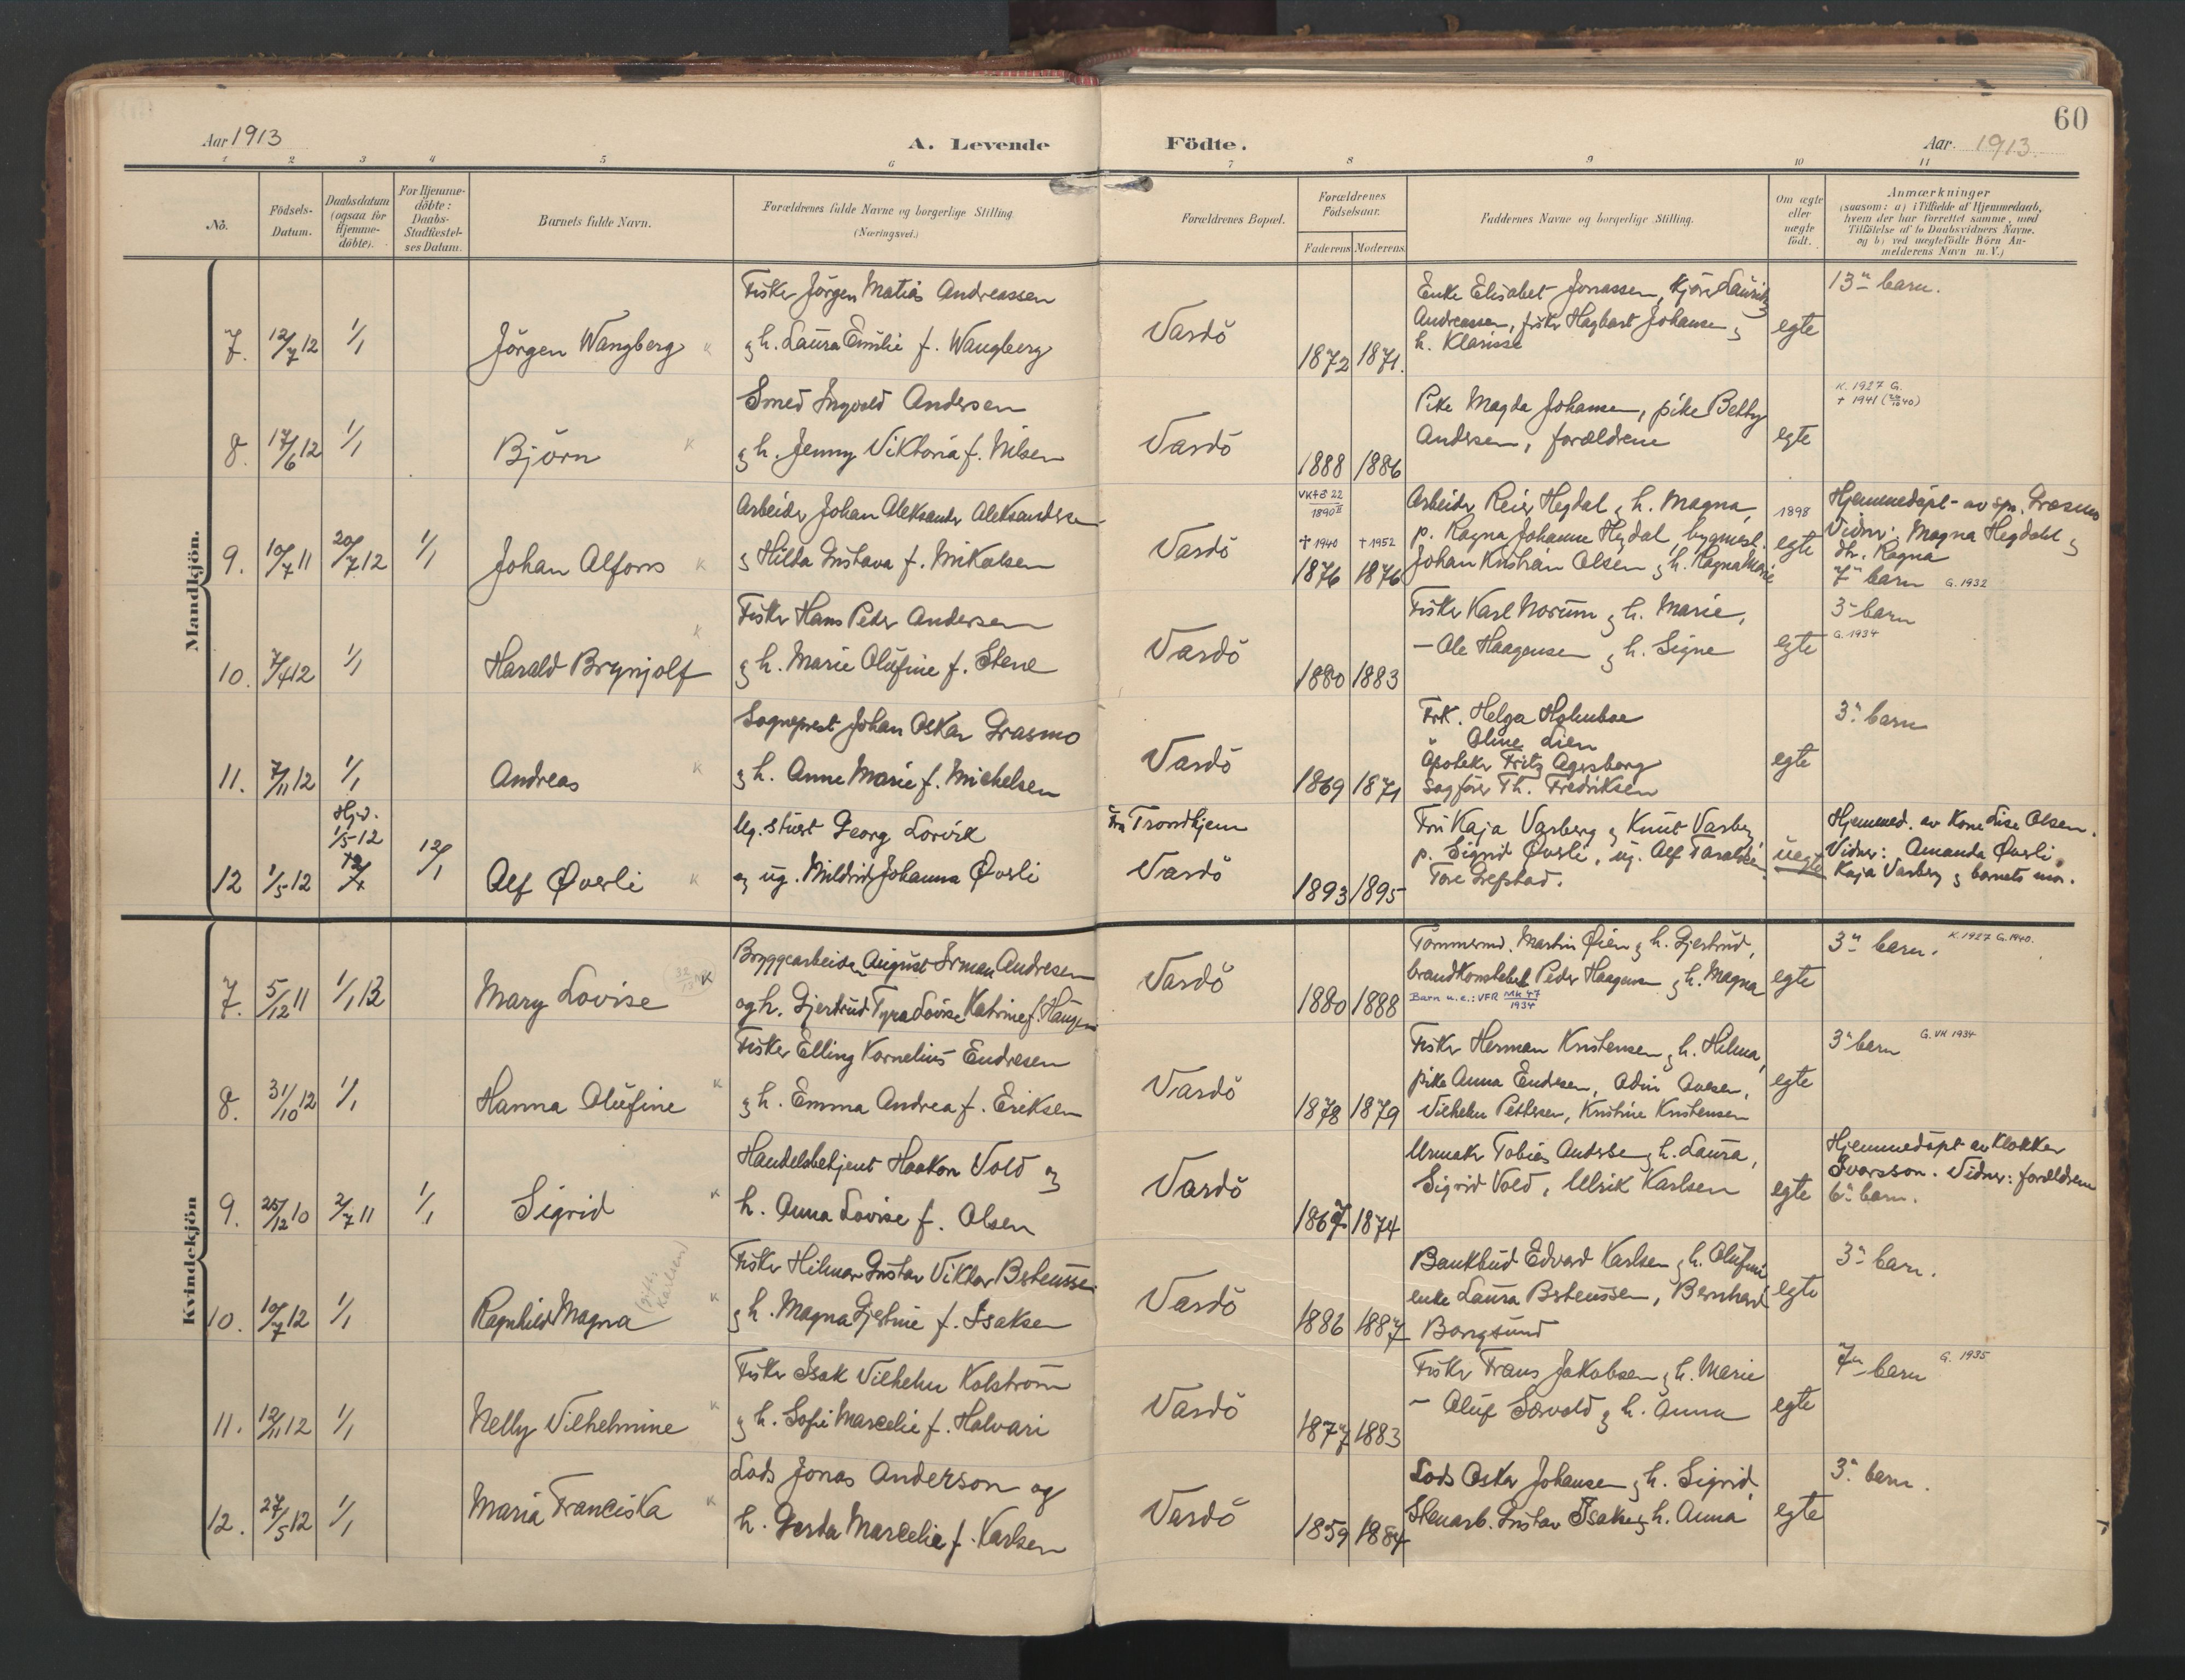 60
Aar 1913
A. Levende Födte.
Aar. 1913.
1 2 3 4 5 6 7 8 9 10 11
No.
Födsels-Datum.
Daabsdatum (ogsaa for Hjemme-döbte).
For Hjemme-döbte: Daabs-Stadfæstel-ses Datum.
Barnets fulde Navn.
Forældrenes fulde Navne og borgerlige Stilling
(Næringsvei.)
Forældrenes Bopæl.
Forældrenes Födselsaar.
Faderens Moderens
Faddernes Navne og borgerlige Stilling.
Om ægte eller uægte födt.
Anmærkninger
(saasom: a) i Tilfælde af Hjemmedaab, hvem der har forrettet samme, med Tilföielse af to Daabsvidners Navne. og b) ved uægtefödte Börn An-melderens Navn m. V.)
Mandkjön.
Fisker Jörgen Matias Andreassen
7. 12/7 12 1/1 Jörgen Wangberg K
g h. Laura Emilie f. Wangberg
Vardö
1872 1871.
Enke Elisabet Jonassen, Kjörer Lauritz
Andreassen, fisker Hagbart Johansen g
h. Klarisse
egte
13de barn.
Smed Ingvald Andersen
8. 17/6 12 1/1 Björn K
g h. Jenny Viktoria f. Nilsen
Vardö
1888 1886
Pike Magda Johansen, pike Betty
Andersen, forældrene
egte
K. 1927 G.
+ 1941
Arbeider Johan Aleksander Aleksandersen
9. 10/7 11 20/7 12 1/1 Johan Alfons K
g Hilda Gustava f. Mikalsen
Vardö
† 1940 † 1952
1876 1876
Arbeider Reier Hegdal g h. Magna,
p. Ragna Johanne Hegdal, bygmest.
Johan Kristian Olsen g h. Ragna Marie
1898
egte
Hjemmedöpt av sp. Græsmo
Vidner: Magna Hegdahl g
dtr. Ragna
7de barn G. 1932
Fisker Hans Peder Andersen
10. 7/4 12 1/1 Harald Brynjolf K
g h. Marie Olufine f. Stene
Vardö
1880 1883
Fisker Karl Norum g h. Marie,
— Ole Haagensen g h. Signe
egte
3de barn
G. 1934
Sogneprest Johan Oskar Grasmo
11. 7/11 12 1/1 Andreas K
g h. Anne Marie f. Michelsen
Vardö
1869 1871
Frk. Helga Holmboe
" Oline Lien
Apoteker Fritz Agersborg
Sagförer Th. Fredriksen
egte
3de barn
Hjd.
1/5-12
Ug. Georg Lorvik
Trondhjem
12 1/5 12 12/1 Alf Øverli K
og ug. Mildrid Johanna Øverli
Vardö
1893 1895
Fru Kaja Varberg g Knut Varberg
p. Sigrid Øverli, ug. Alf Taraldsen
Tore Grefstad.
uegte
Hjemmed. av Kone Lise Olsen.
Vidner: Amanda Øverli,
Kaja Varberg g barnets mor.
Kvindekjön
Bryggearbeider August Irman Andresen
7. 5/12 11 1/1 13 Mary Lovise K
og h. Gjertrud Tyra Lovise Katrine f. Haugen
Vardö
1880 1888
Tömmermd. Martin Öien g h. Gjertrud,
brandkonstabel Peder Haagensen g h. Magna
Barn u.e.: VFR MK 47 1934
egte
3de barn.
K. 1927 G. 1940.
Fisker Elling Kornelius Endresen
8. 31/10 12 1/1 Hanna Olufine K
g h. Emma Andrea f. Eriksen
Vardö
1878 1879
Fisker Herman Kristensen g h. Hilma,
pike Anna Endresen, Odin Ovesen,
Vilhelm Pettersen, Kristine Kristensen
egte
3de barn
G. VH 1934
Handelsbetjent Haakon Vold og
9. 25/12 10 2/7 11 1/1 Sigrid K
h. Anna Lovise f. Olsen
Vardö
1867 1874
Urmaker Tobias Andersen g h. Laura,
Sigrid Vold, Ulrik Karlsen
egte
Hjemmedöpt av Klokker
Ivarsson. Vidner: forældrene
6te barn.
Fisker Hilmar Gustav Viktor Berteussen
10. 10/7 12 1/1 Ragnhild Magna (gift Karlsen) K
g h. Magna Gjertine f. Isaksen
Vardö
1886 1887
Bankbud Edvard Karlsen g h. Olufine
enke Laura Berteussen, Bernhard
Bangsund
egte
3de barn.
Fisker Isak Vilhelm Kolström
11. 12/11 12 1/1 Nelly Vilhelmine K
g h. Sofie Marcelie f. Halvari
Vardö
1877 1883
Fisker Frans Jakobsen g h. Marie
— Oluf Sörvold g h. Anna
egte
7de barn
G. 1935
Lods Jonas Anderson og
12. 27/5 12 1/1 Maria Franciska K
h. Gerda Marcelie f. Karlsen
Vardö
1859 1884
Lods Oskar Johansen g h. Sigrid,
Stenarb. Gustav Isaksen g h. Anna
egte
3de barn.